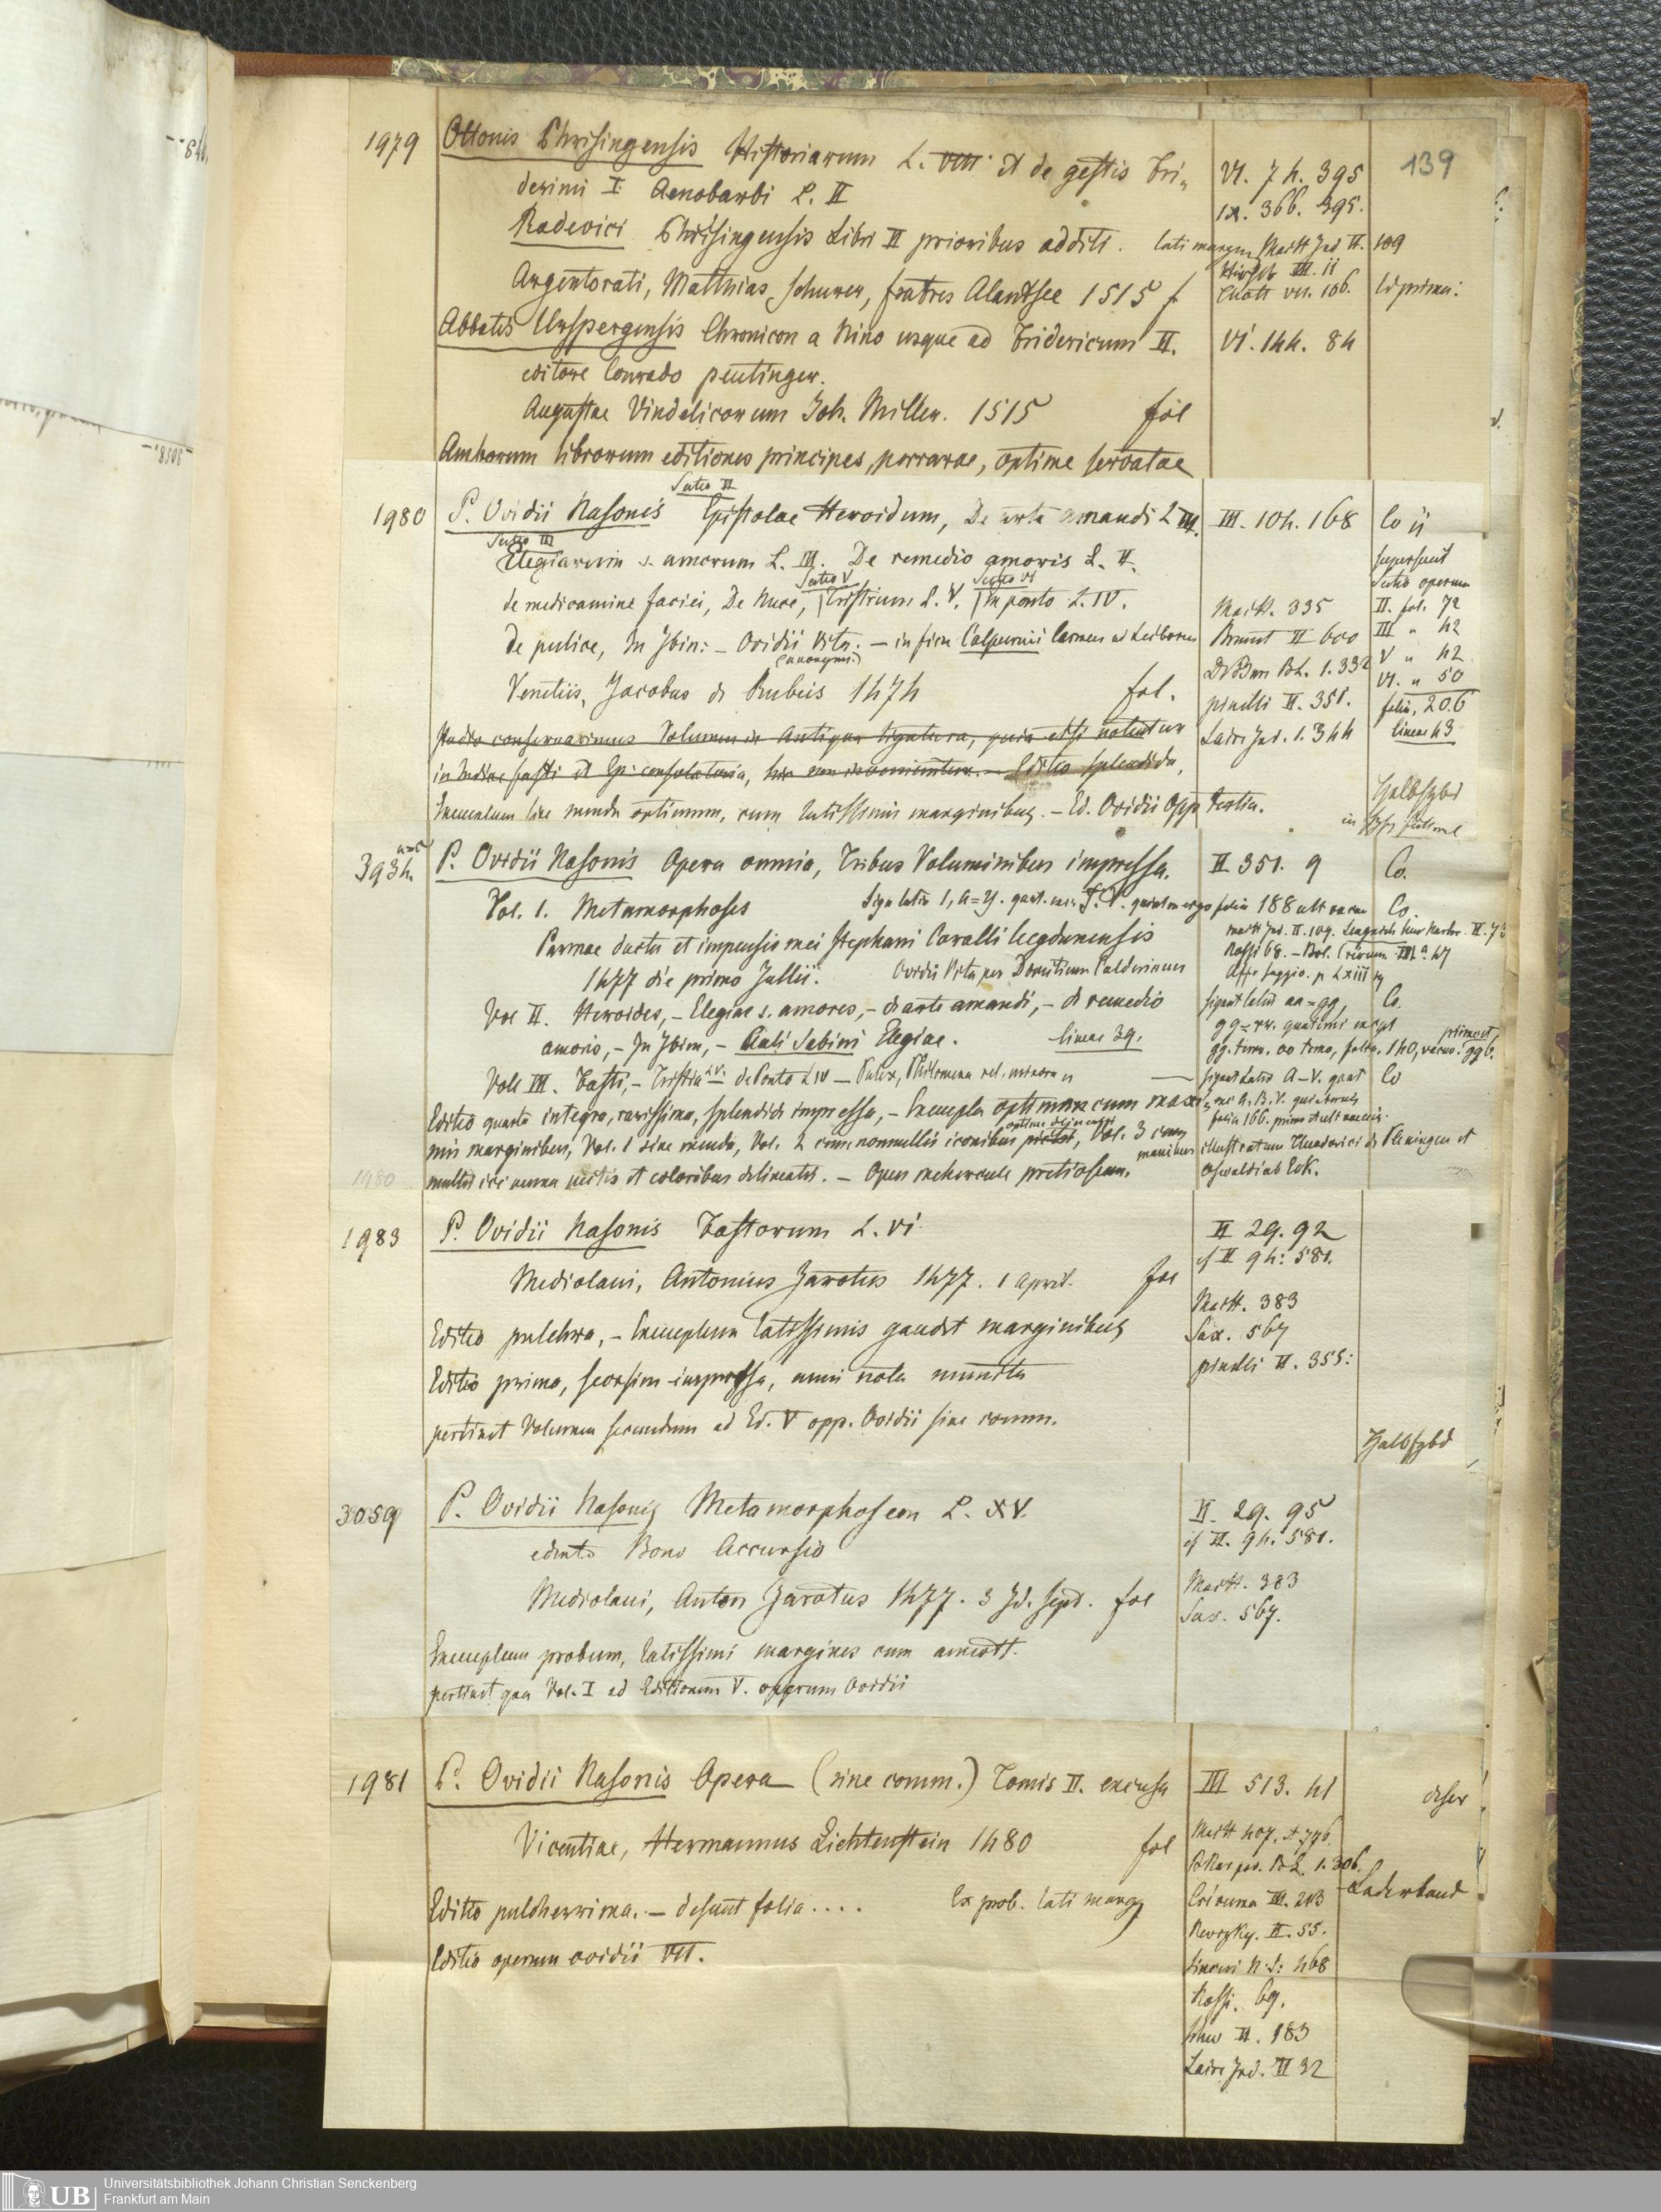 139
1979 Ottonis Phrisingensis Historiarum L. VIII et de gestis Fri„ VI. 74. 395
derimi I Aenobarbi L. II IX. 366. 395.
Radevici Phrisingensis Libri II prioribus additi. lati margin Maitt Ind II. 109
Argentorati, Matthias Schurer, fratres Alantsee 1515 f
VII. 106. Ed princ:
Abbatis Urspergensis Chronicon a Nino usque ad Fridericum II. VI. 144. 84
editore Conrado peutinger.
Augustae Vindelicorum Joh. Miller. 1515 fol
Amborum librorum editiones principes, perrarae, optime servatae
Sectio II
1980 P. Ovidii Nasonis Epistolae Heroidum, De arte amandi L III. III. 104. 168 Co ii
Sectio III
Elegiarum s. amorum L. III. De remedio amoris L. II. supersunt
Sectio V Sectio VI Sectio operum
de medicamine faciei, De Nuce, Tristium L. V. In ponto L. IV. Maitt. 335 II. fol. 72
de pulice, In Ibin: – Ovidii Vita. – in fine Calpurnii Carmen Brunet II 600 III „ 42
(anonymi.) De Bure BL. 1. 332 V „ 42
VI. „ 50
Venetiis, Jacobus de Rubeis 1474 fol. pinelli II. 351. folia, 206
conservavimus Volumen in Antiqua ligatura, quia etsi notentur Laire Ind. 1. 344 lineae 43
in Indice fasti et Ep: consolatoria, hic non inveniuntur. – Editio splendida,
Exemplum sine menda optimum, cum latissimis marginibus. – Ed. Ovidii Opp tertia. Halbfzbd
in
3934. P. Ovidii Nasonis Opera omnia, Tribus Voluminibus impressa. II 351. 9 Co.
Vol. 1. Metamorphoses Signatura 1, a=y. quat. folia 188 ult vacua Co.
Parmae ductu et impensis mei Stephani Coralli lugdunensis Maitt Ind. II. 109.
Rossi 68. –
1477 die primo Jullii. Ovidii Vita per Domitium Calderinum Affo saggio. p LXIII
Vol II. Heroides, – Elegiae s. amores, – de arte amandi, – de remedio signat latio aa=gg, Co.
amoris, – In Ibim, – Auli Sabini Elegiae. lineae 39.
Vol III. Fasti, – Tristia L.V. de Ponto L IV – Pulex, Philomena rel. minora signat latio A–V. quat Co
folia 166.
Editio quarta integra, rarissima, splendide impressa, – Exempla optima cum maxi„
mis marginibus, Vol. 1 sine menda, Vol. 2 cum nonnullis iconibus pictis, Vol. 3 cum manibus illustratum Theoderici de Pleningen et
multis pictis et coloribus delineatis. – Opus mehercule pretiosum. Oswaldi ab Eck.
1980
1983 P. Ovidii Nasonis Fastorum L. VI II 29. 92
cf II 94: 581.
Mediolani, Antonius Zarotus 1477. 1 April. fol
Maitt. 383
Editio pulchra, – Exemplum latissimis gaudet marginibus Sax. 567
Editio prima, seorsim impressa, anni nota munita pinelli II. 355:
pertinet Volumen secundum ad Ed. V opp. Ovidii sine comm.
Halbfzbd
3059 P. Ovidii Nasonis Metamorphoseon L. XV. II. 29. 95
edente Bono Accursio cf II. 94. 581.
Mediolani, Anton Zarotus 1477. 3 Id. Sept. fol Maitt. 383
Sax. 567.
Exemplum probum, latissimi margines cum annott.
pertinet qua Vol. I ad Editionem V. operum Ovidii
1981 P. Ovidii Nasonis Opera (sine comm.) Tomis II. excusa III 513. 41
Vicentiae, Hermannus Lichtenstein 1480 fol Maitt 407. et 776.
1. 306.
Editio pulcherrima. – desunt folia .... Ex prob. lati marg Crevenna III. 213 Lederband
Revizky. II. 55.
Editio operum ovidii VII. 468
Rossi. 69.
II. 183
Laire Ind. II 32
UB Universitätsbibliothek Johann Christian Senckenberg
Frankfurt am Main